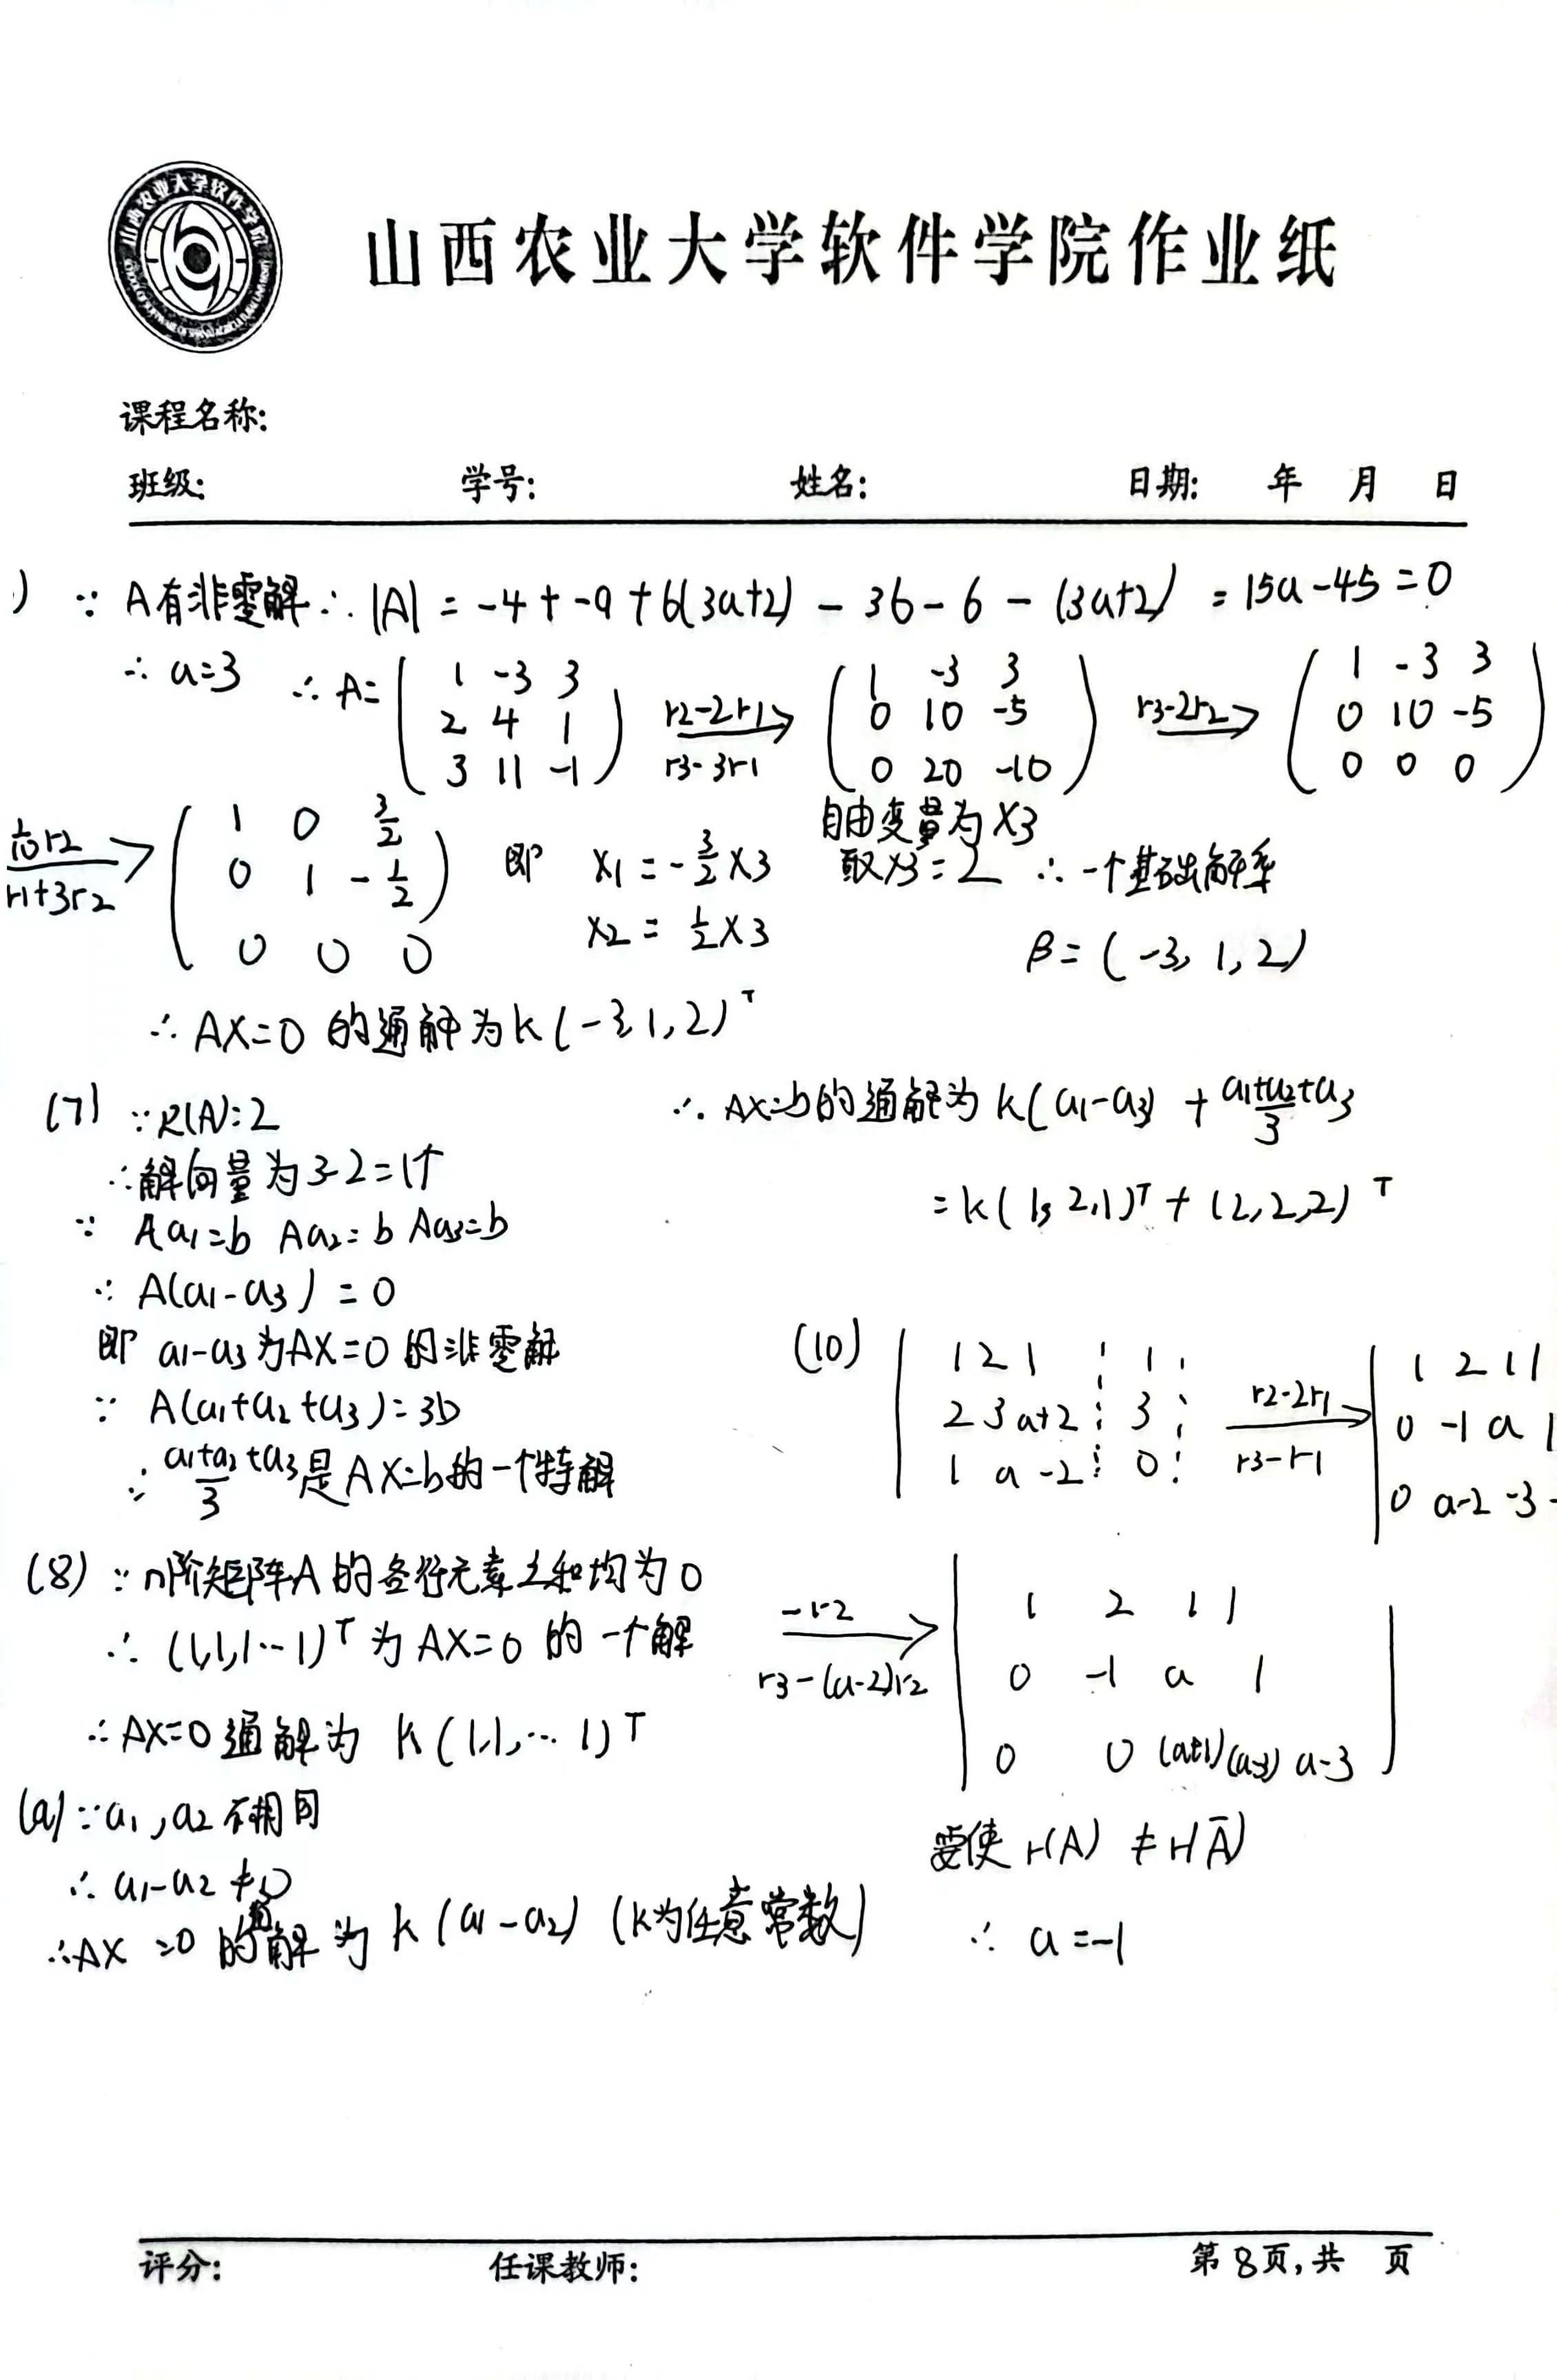 山西农业大学软件学院
山西农业大学软件学院作业纸
课程名称:
班级: 学号: 姓名: 日期: 年 月 日
) ∵ A有非零解 ∴ |A| = -4 + -9 + 6(3a+2) - 36 - 6 - (3a+2) = 15a-45 = 0
∴ a=3 ∴ A= ( 1 -3 3 ; 2 4 1 ; 3 11 -1 ) r2-2r1 r3-3r1 → ( 1 -3 3 ; 0 10 -5 ; 0 20 -10 ) r3-2r2 → ( 1 -3 3 ; 0 10 -5 ; 0 0 0 )
1/10 r2 r1+3r2 → ( 1 0 3/2 ; 0 1 -1/2 ; 0 0 0 ) 即 x1 = -3/2 x3
x2 = 1/2 x3
自由变量为 x3
取x3=2 ∴ 一个基础解系
β = (-3, 1, 2)
∴ AX=0 的通解为 k(-3,1,2)ᵀ
(7) ∵ R(A)=2
∴解向量为3-2=1个
∵ Aa1=b Aa2=b Aa3=b
∴ A(a1-a3) = 0
即 a1-a3为AX=0的非零解
∵ A(a1+a2+a3)=3b
∴ (a1+a2+a3)/3 是AX=b的一个特解
∴ AX=b的通解为 k(a1-a3) + (a1+a2+a3)/3
= k(1,2,1)ᵀ + (2,2,2)ᵀ
(8) ∵ n阶矩阵A的各行元素之和均为0
∴ (1,1,1…1)ᵀ为AX=0的一个解
∴ AX=0通解为 k(1,1,…1)ᵀ
(9) ∵ a1,a2不相同
∴ a1-a2≠0
∴AX=0的通解为 k(a1-a2) (k为任意常数)
(10) | 1 2 1 ¦ 1 ; 2 3 a+2 ¦ 3 ; 1 a -2 ¦ 0 r2-2r1 r3-r1 → | 1 2 1 1 ; 0 -1 a 1 ; 0 a-2 -3 -
-r2 r3-(a-2)r2 → | 1 2 1 1 ; 0 -1 a 1 ; 0 0 (a+1)(a-3) a-3 |
要使 r(A) ≠ r(Ā)
∴ a=-1
评分: 任课教师: 第 8 页,共 页